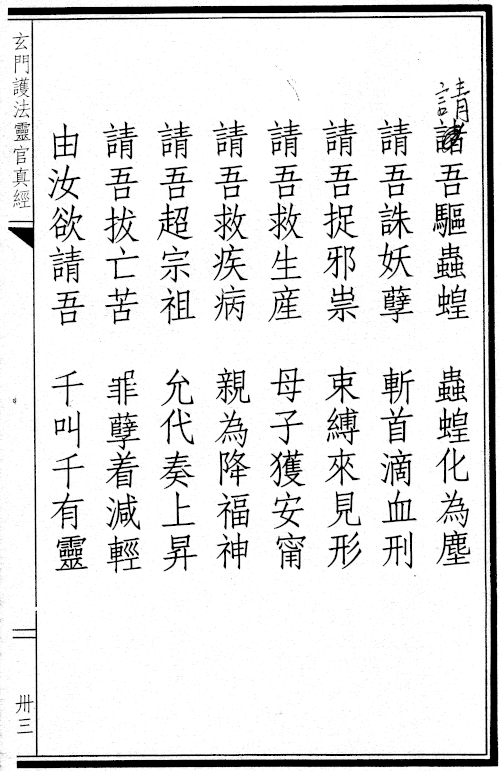 請吾驅蟲蝗 蟲蝗化為塵
請吾誅妖孽 斬首滴血刑
請吾捉邪祟 束縛來見形
請吾救生産 母子獲安甯
請吾救疾病 親為降福神
請吾超宗祖 允代奏上昇
請吾拔亡苦 罪孽着減輕
由汝欲請吾 千叫千有靈
玄門護法靈官真經
卅三